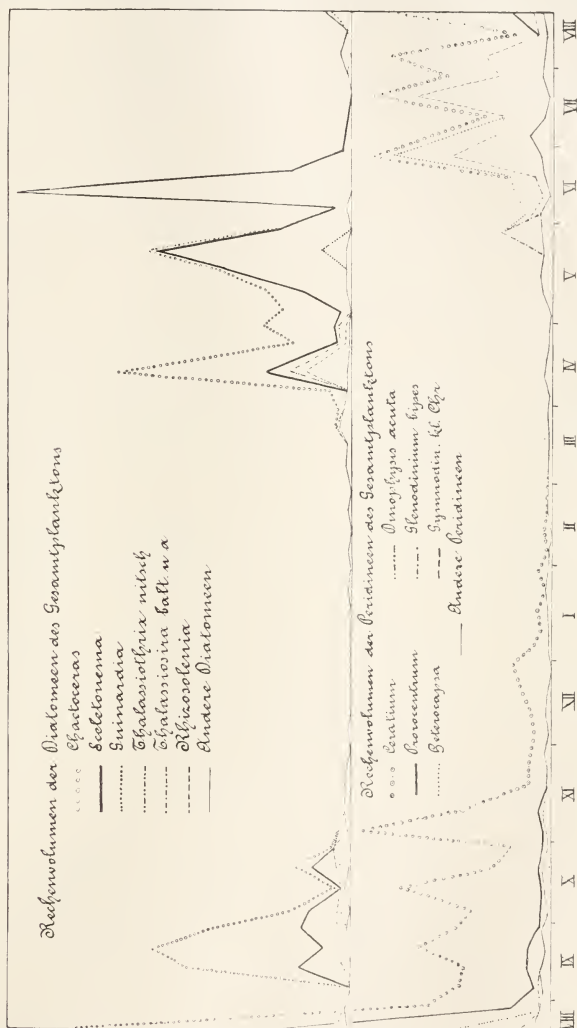 Rechenvolumen der Diatomeen des Gesamtplanktons
Chaetoceras
Sceletonema
Guinardia
Thalassiothrix nitsch
Thalassiosira balt. u a
Rhizosolenia
Andere Diatomeen
Rechenvolumen der Peridineen des Gesamtplanktons
Ceratium
Prorocentrum
Heterocapsa
Dinophysis acuta
Glenodinium bipes
Gymnodin. kl. Chr.
Andere Peridineen
VIII
IX
X
XI
XII
I
II
III
IV
V
VI
VII
VIII